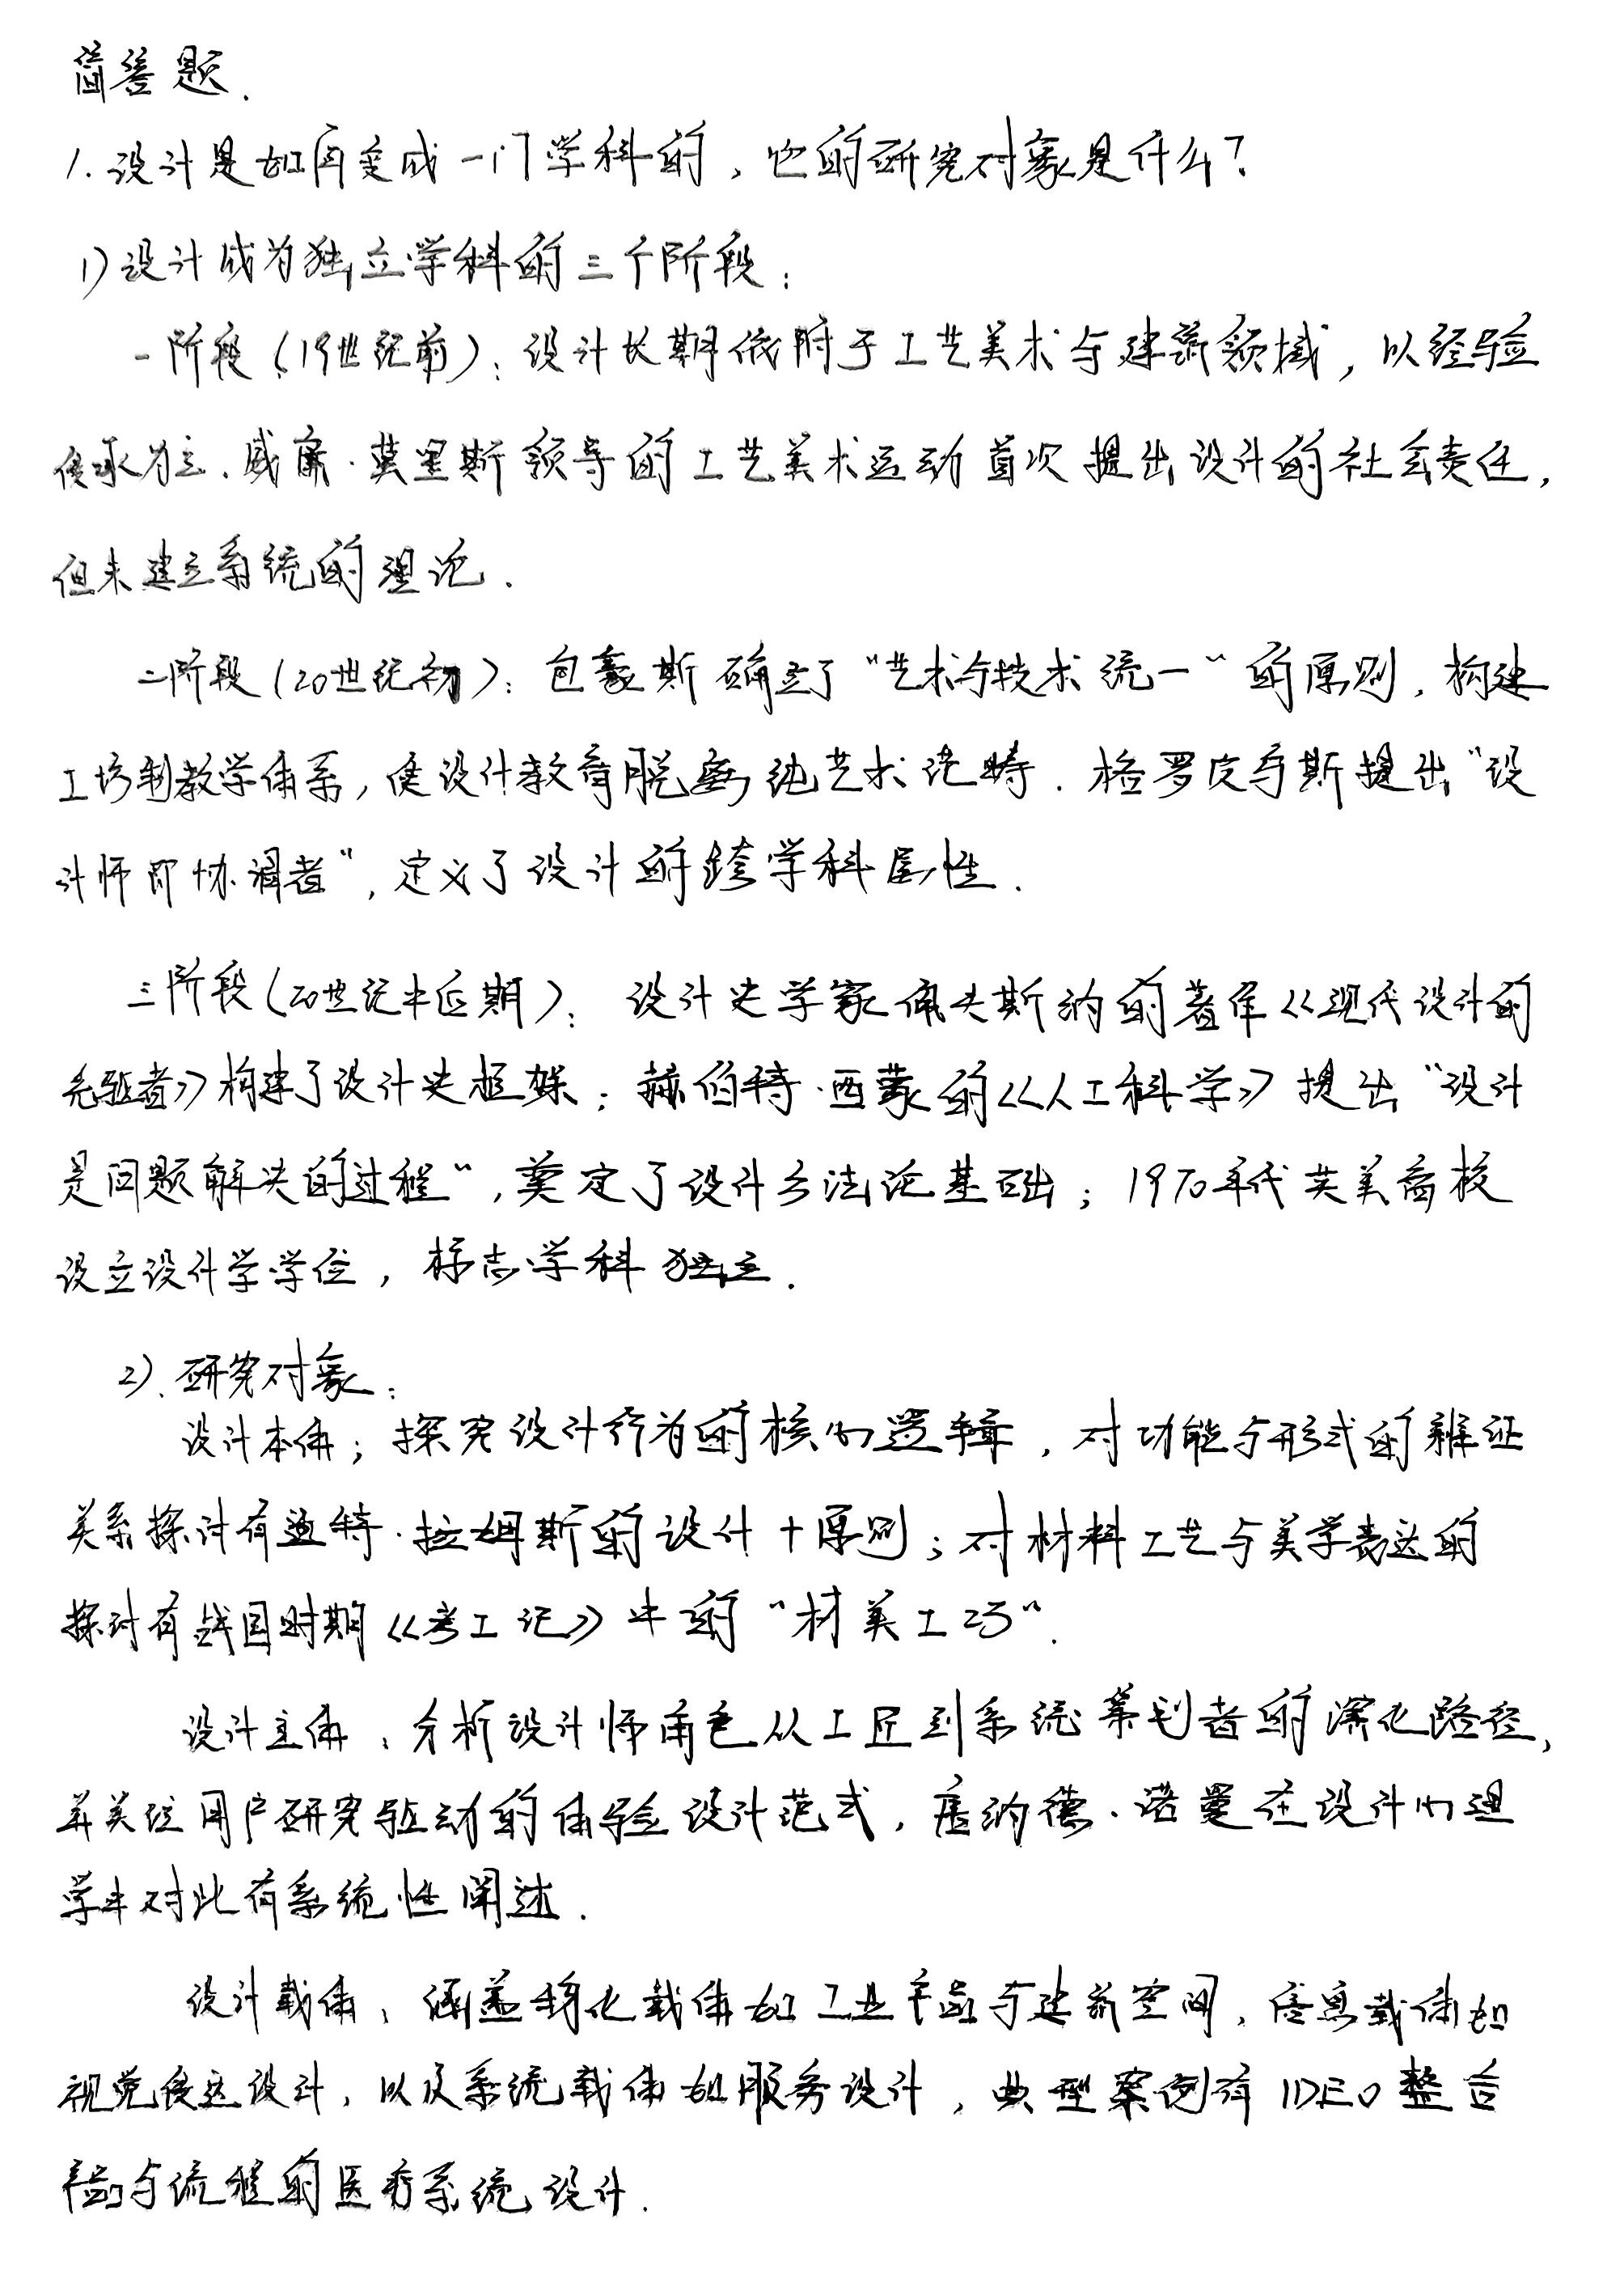 简答题.
1.设计是如何变成一门学科的,它的研究对象是什么?
1)设计成为独立学科的三个阶段:
一阶段(19世纪前):设计长期依附于工艺美术与建筑领域,以经验
传承为主.威廉·莫里斯领导的工艺美术运动首次提出设计的社会责任,
但未建立系统的理论.
二阶段(20世纪初):包豪斯确立了“艺术与技术统一”的原则,构建
工坊制教学体系,使设计教育脱离纯艺术范畴.格罗皮乌斯提出“设
计师即协调者”,定义了设计的跨学科属性.
三阶段(20世纪中后期):设计史学家佩夫斯纳的著作《现代设计的
先驱者》构建了设计史框架;赫伯特·西蒙的《人工科学》提出“设计
是问题解决的过程”,奠定了设计方法论基础;1970年代英美高校
设立设计学学位,标志学科独立.
2).研究对象:
设计本体;探究设计行为的核心逻辑,对功能与形式的辩证
关系探讨有迪特·拉姆斯的设计十原则;对材料工艺与美学表达的
探讨有战国时期《考工记》中的“材美工巧”.
设计主体:分析设计师角色从工匠到系统策划者的演化路径,
并关注用户研究驱动的体验设计范式,唐纳德·诺曼在设计心理
学中对此有系统性阐述.
设计载体:涵盖物化载体如工业产品与建筑空间,信息载体如
视觉传达设计,以及系统载体如服务设计,典型案例有IDEO整合
产品与流程的医疗系统设计.